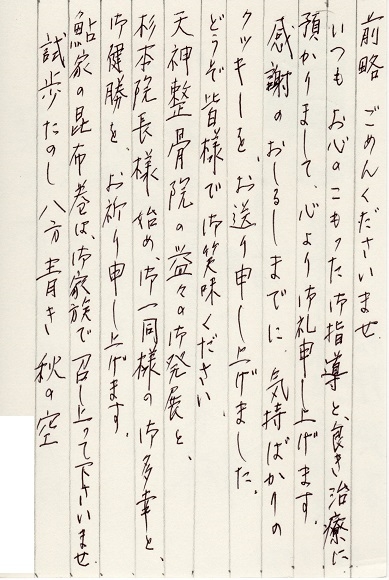 前略 ごめんくださいませ
いつもお心のこもった御指導と、良き治療に
預かりまして、心より御礼申し上げます。
感謝のおしるしまでに、気持ばかりの
クッキーを、お送り申し上げました。
どうぞ皆様で御笑味ください
天神整骨院の益々の御発展と、
杉本院長様始め、御一同様の御多幸と、
御健勝を、お祈り申し上げます。
鮎家の昆布巻は、御家族で召し上って下さいませ
試歩たのし八方青き秋の空